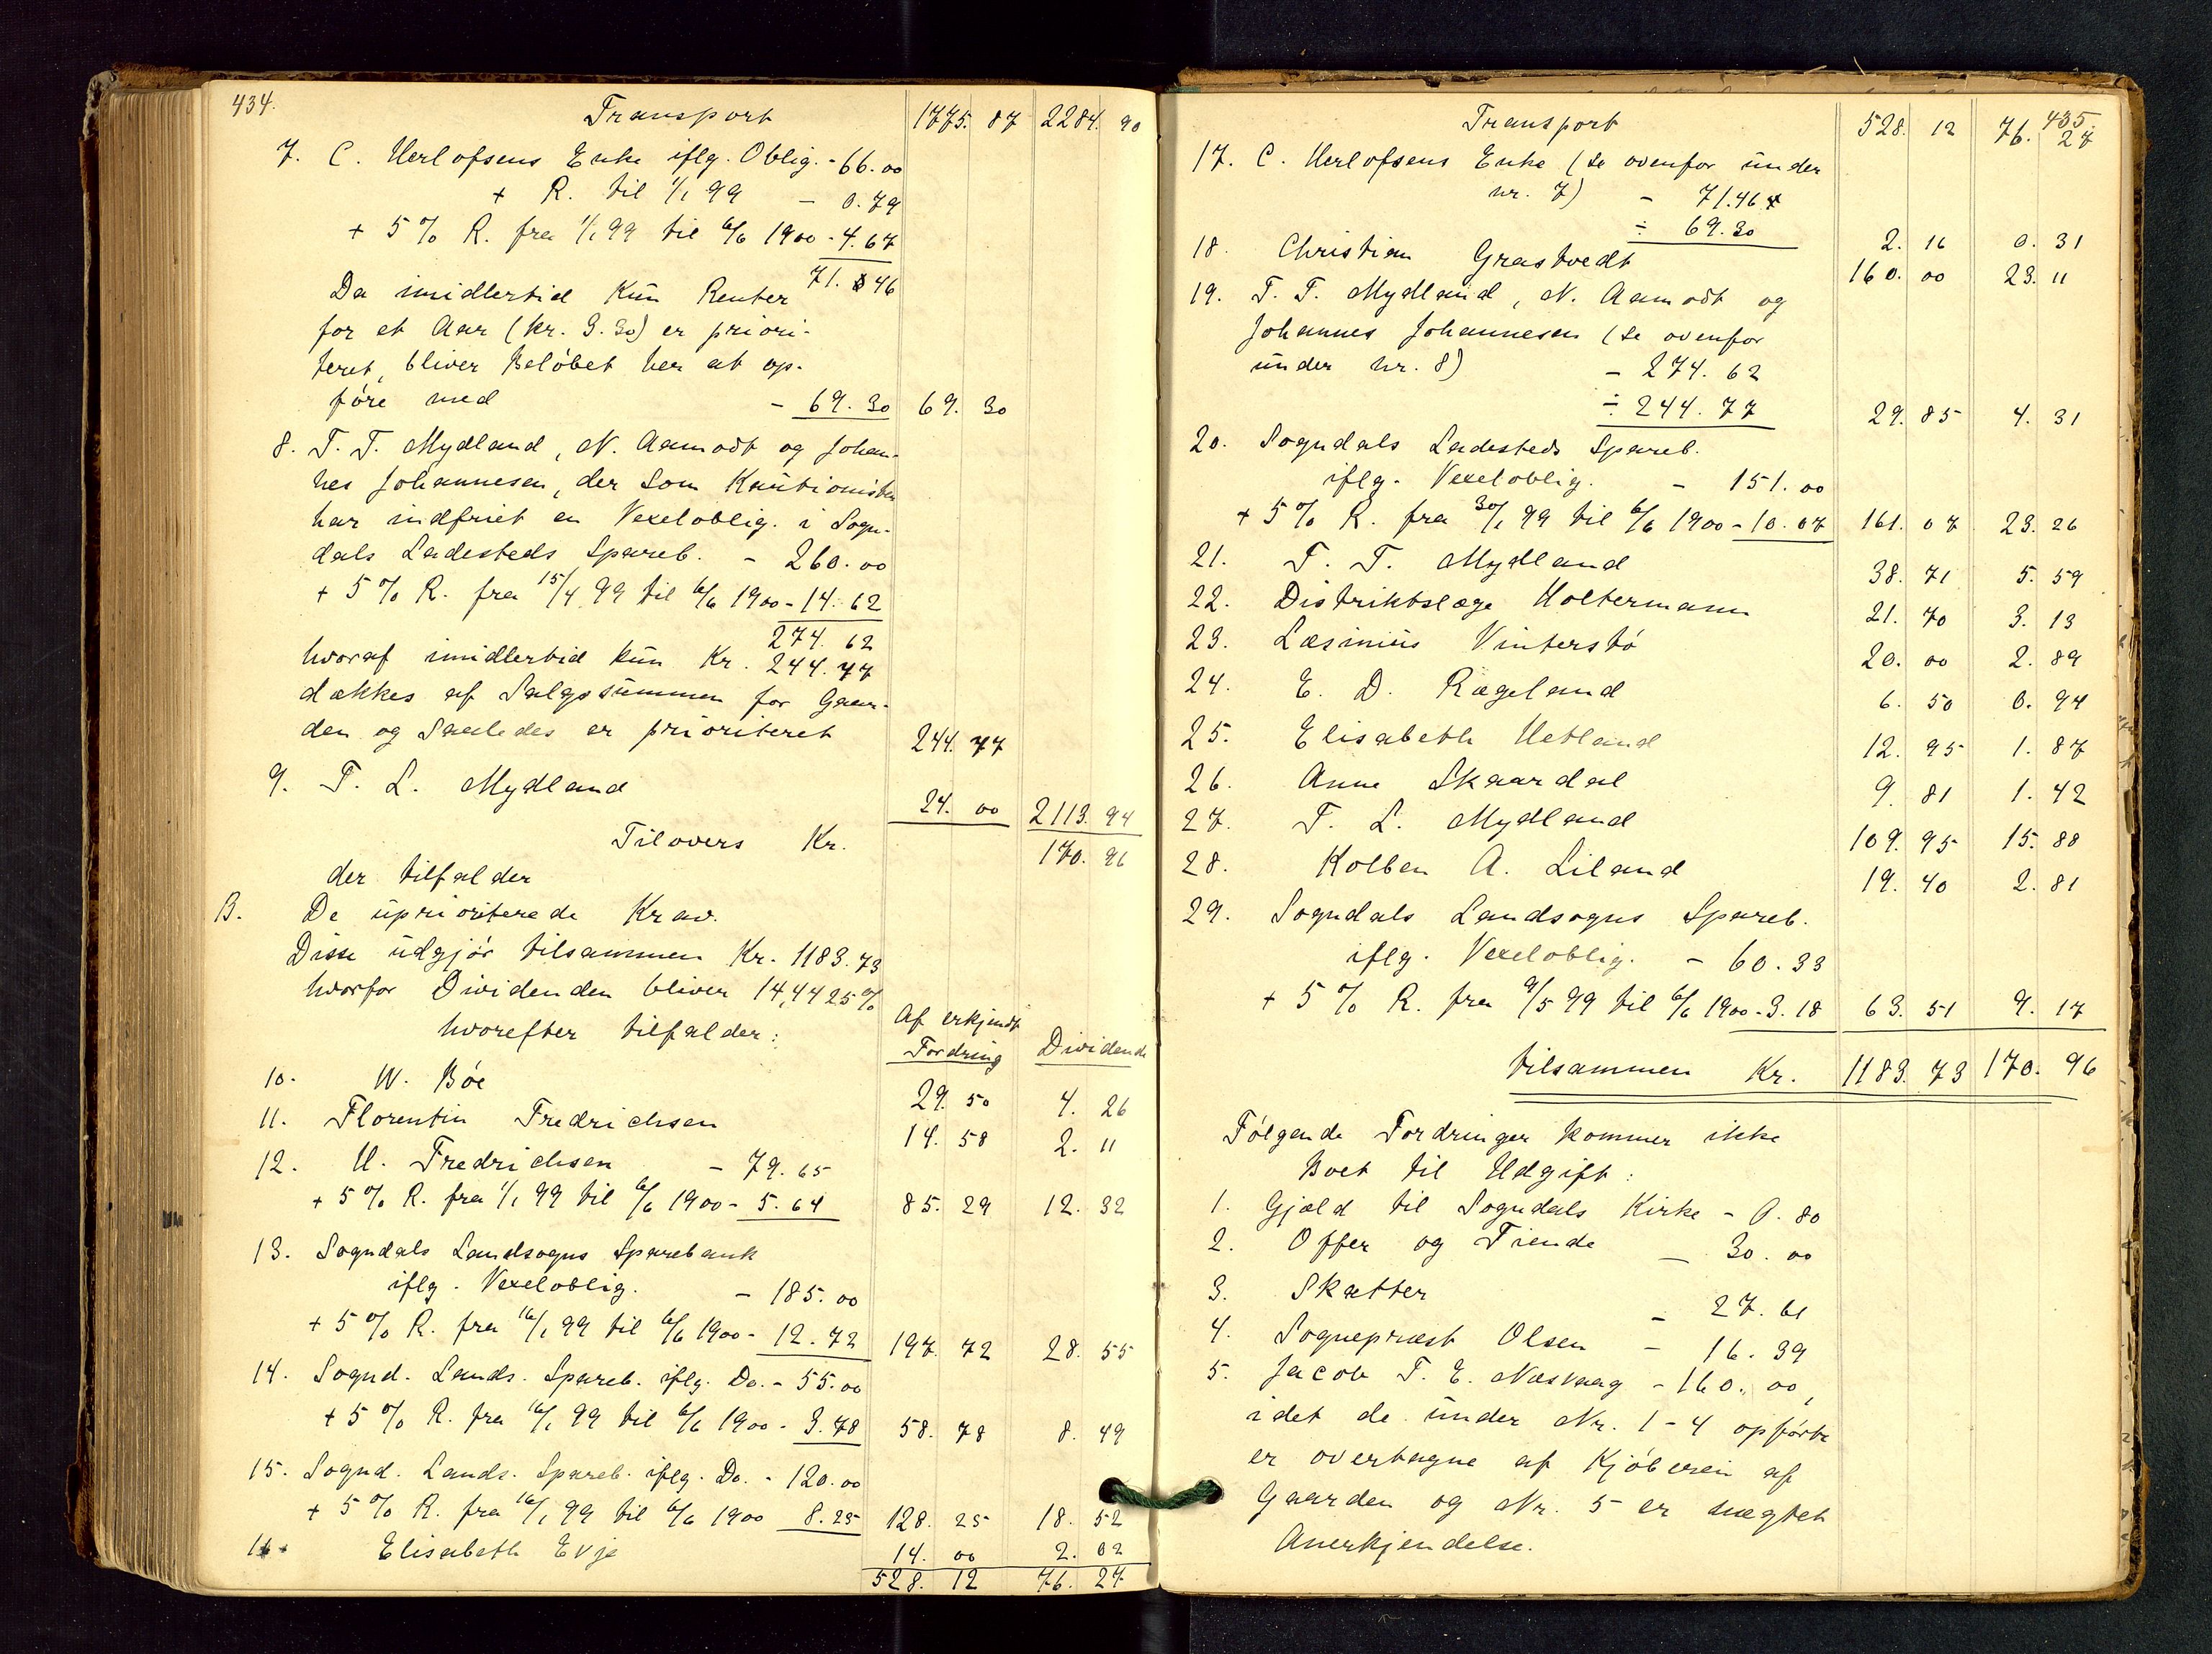 434.
Transport 1775. 87 2284. 90
7. C. Herlofsens Enke iflg. Oblig. - 66.00
+ R. til 1/1 99 - 0.79
+ 5 % R. fra 1/1 99 til 6/6 1900 - 4.67
71.46
Da imidlertid kun Renter
for et Aar (kr. 3.30) er priori-
teret, bliver Beløbet her at op-
føre med - 69.30 69. 30
8. T. T. Mydland, N. Aamodt og Johan-
nes Johannesen, der som Kautionister
har indfriet en Vexeloblig. i Sogn-
dals Ladesteds Spareb. - 260.00
+ 5 % R. fra 15/4 99 til 6/6 1900 - 14.62
274.62
hvoraf imidlertid kun Kr. 244.77
dækkes af Salgssummen for Gaar-
den og saaledes er prioriteret 244. 77
9. T. L. Mydland 24. 00 2113. 94
Tilovers Kr. 170. 96
der tilfalder
B. De uprioriterede Krav.
Disse udgjør tilsammen Kr. 1183.73
hvorfor Dividenden bliver 14,4425 %
hvorefter tilfalder: Af erkjendt Fordring Dividende
10. W. Bøe 29. 50 4. 26
11. Florentin Fredrichsen 14. 58 2. 11
12. H. Fredrichsen - 79.65
+ 5 % R. fra 1/1 99 til 6/6 1900 - 5.64 85. 29 12. 32
13. Sogndals Landsogns Sparebank
iflg. Vexeloblig. - 185.00
+ 5 % R. fra 16/1 99 til 6/6 1900 - 12.72 197. 72 28. 55
14. Sognd. Lands. Spareb. iflg. Do. - 55.00
+ 5 % R. fra 16/1 99 til 6/6 1900 - 3.78 58. 78 8. 49
15. Sognd. Lands. Spareb. iflg. Do. - 120.00
+ 5 % R. fra 16/1 99 til 6/6 1900 8.25 128. 25 18. 52
16. Elisabeth Evje 14. 00 2. 02
528. 12 76. 27
435.
Transport 528. 12 76. 27
17. C. Herlofsens Enke (se ovenfor under
nr. 7) - 71.46
÷ 69.30 2. 16 0. 31
18. Christian Grastvedt 160. 00 23. 11
19. T. T. Mydland, N. Aamodt og
Johannes Johannesen (se ovenfor
under nr. 8) - 274.62
÷ 244.77 29. 85 4. 31
20. Sogndals Ladesteds Spareb.
iflg. Vexeloblig. - 151.00
+ 5 % R. fra 30/1 99 til 6/6 1900 - 10.07 161. 07 23. 26
21. T. T. Mydland 38. 71 5. 59
22. Distriktslæge Holtermann 21. 70 3. 13
23. Lasinius Vinterstø 20. 00 2. 89
24. E. D. Rægeland 6. 50 0. 94
25. Elisabeth Hetland 12. 95 1. 87
26. Anne Skaardal 9. 81 1. 42
27. T. L. Mydland 109. 95 15. 88
28. Kolben A. Liland 19. 40 2. 81
29. Sogndals Landsogns Spareb.
iflg. Vexeloblig. - 60.33
+ 5 % R. fra 9/5 99 til 6/6 1900 - 3.18 63. 51 9. 17
tilsammen Kr. 1183. 73 170. 96
Følgende Fordringer kommer ikke
Boet til Udgift:
1. Gjæld til Sogndals Kirke - 0.80
2. Offer og Tiende - 30.00
3. Skatter - 27.61
4. Sogneprest Olsen - 16.39
5. Jacob T. E. Næsvaag - 160.00,
idet de under Nr. 1-4 opførte
er overtagne af Kjøberen af
Gaarden og Nr. 5 er nægtet
Anerkjendelse.